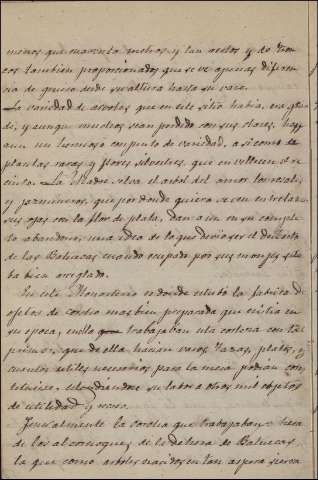 menos que cuarenta metros, y tan rectos y de tron
cos tambien proporcionados que se ve apenas diferen
cia de grueso desde su altura hasta su vase.
La variedad de arboles que en este sitio habia, era gran
de, y aunque muchos sean perdido con sus clases, hay
aun un hermoso conjunto de variedad, asi como de
plantas raras y flores silvestres, que envellecen el re
cinto. La Madre selva el arbol del amor los rosales
y jazmineros, que por donde quiera se ven entrelazar
sus ojas con la flor de plata, dan aun en su comple
to abandono, una idea de lo que devio ser el desierto
de las Batuecas cuando ocupado por sus monjes esta
ba bien arreglado.
En este Monasterio es donde estubo la fabrica de
ojetos de corcho mas bien preparada que existia en
su epoca, en ella trabajaban esta corteza con tal
primor, que de ella hacian vasos tazas, platos, y
cuantos utiles necesarios para la mesa podian con
estendiendose su labor a otros mil objetos
de utilidad y recreo.
Igualmente la corcha que trabajaban hera
de los alcornoques de la de las Batuecas,
la que como arboles nacidos en tan aspera sierra